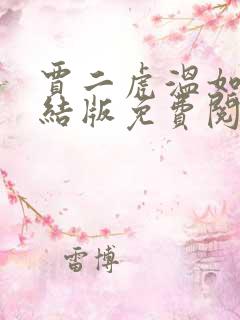 賈二虎溫如
結版免費閱
雷博